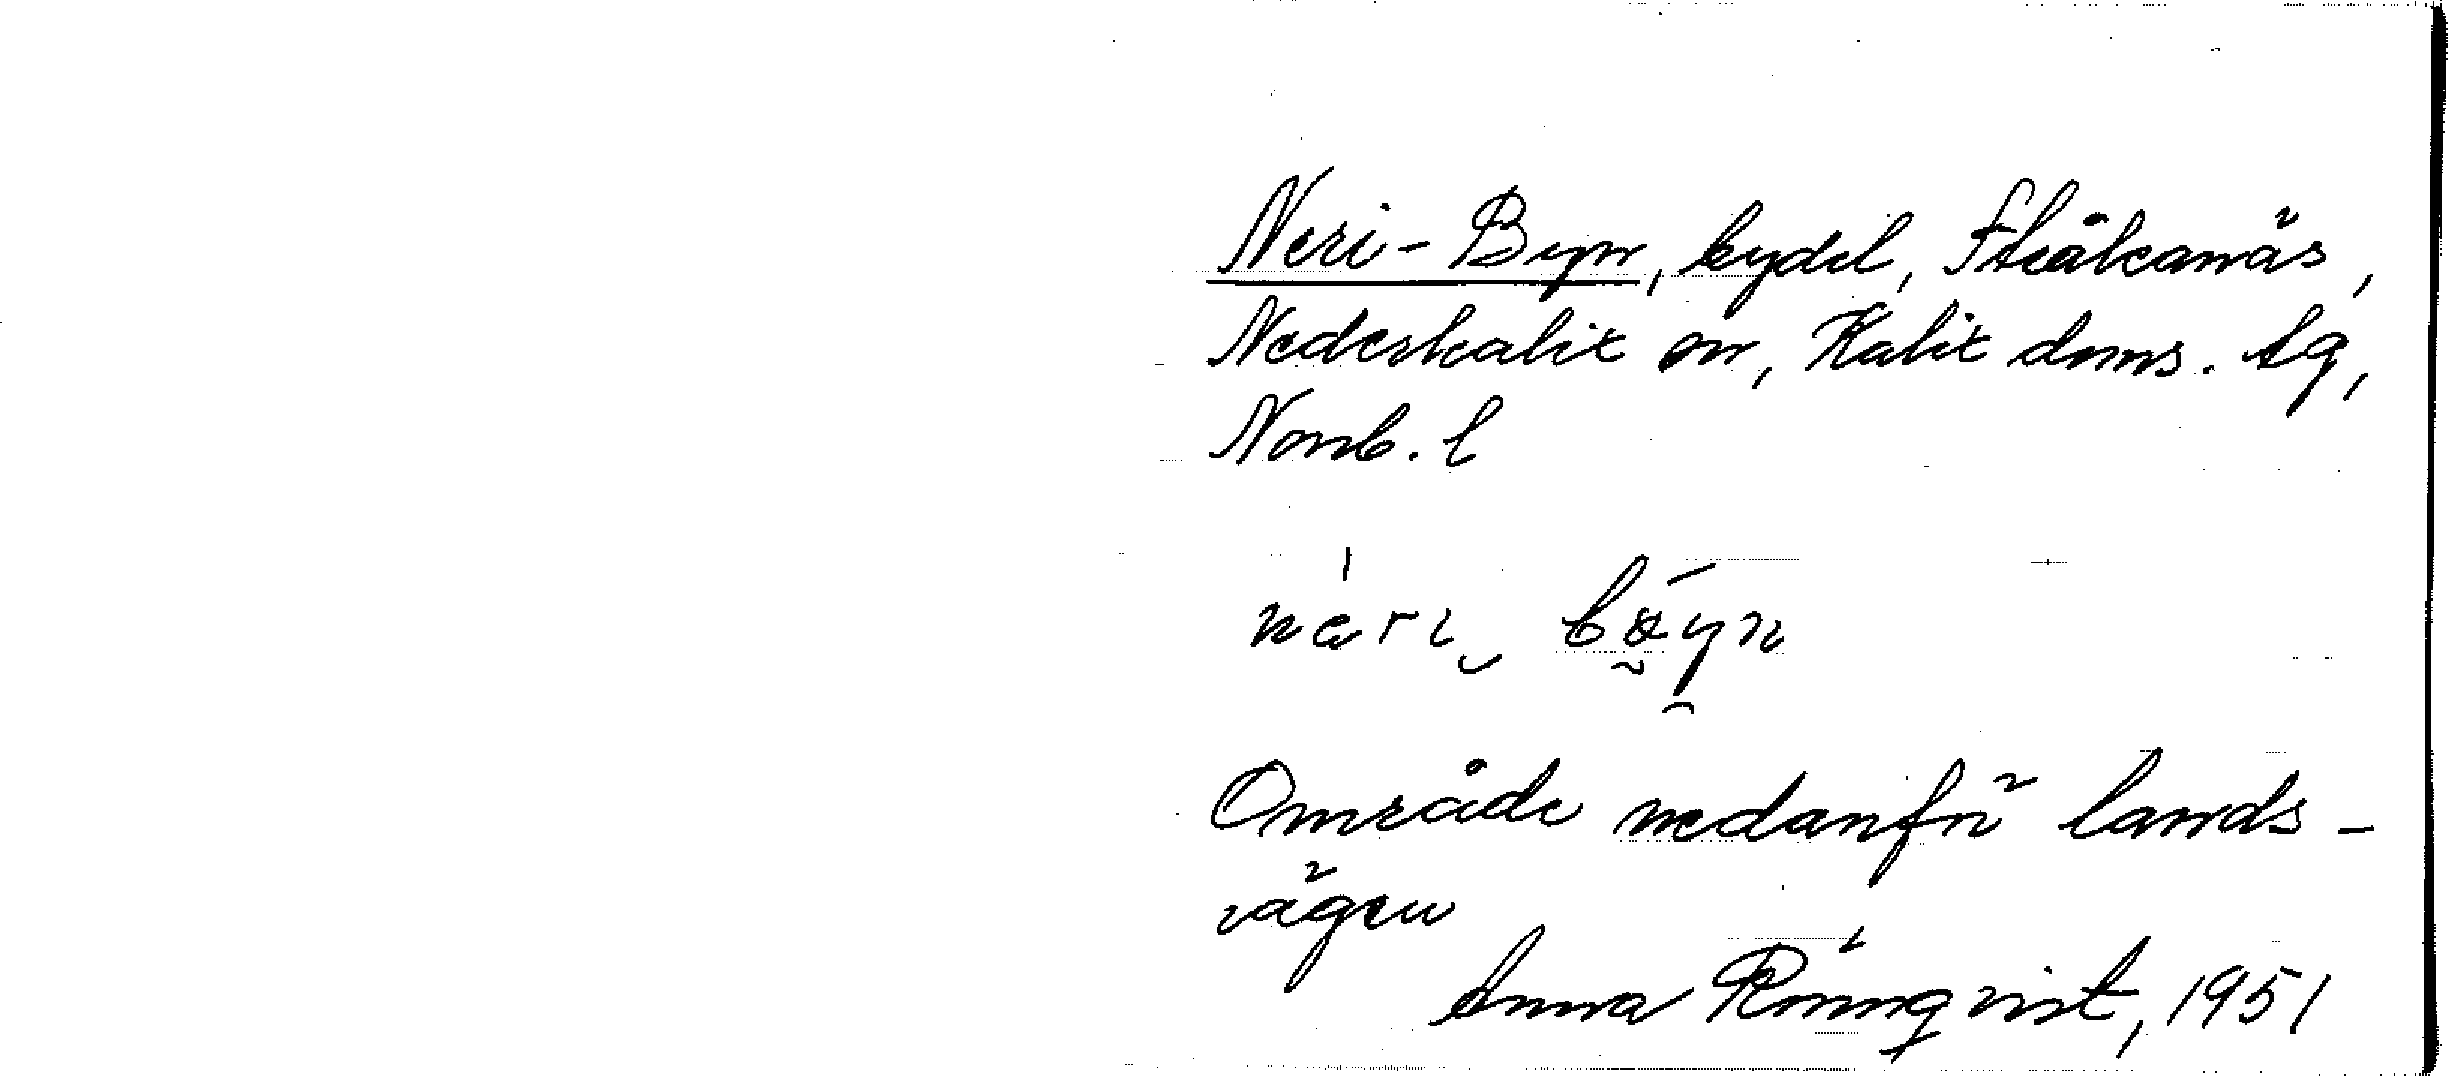 Neri-Byn, bydel, Stråkanäs,
Nederkalix sn, Kalix doms. tg,
Norrb. l
Område nedanför lands-
vägen
Anna Rönnqvist, 1951